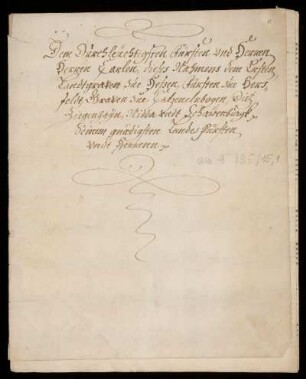 Dem Durchleuchtigsten Fürsten und Herrn
Herrn Carlen, dieses Nahmens dem Ersten
Landtgraven zue Hessen, Fürsten zue Hers-
feldt, Graven zue Catzenelnbogen, Dietz
Ziegenhayn, Nidda undt Schauenburgk
Seinem gnädigsten Landes Fürsten
undt Herren